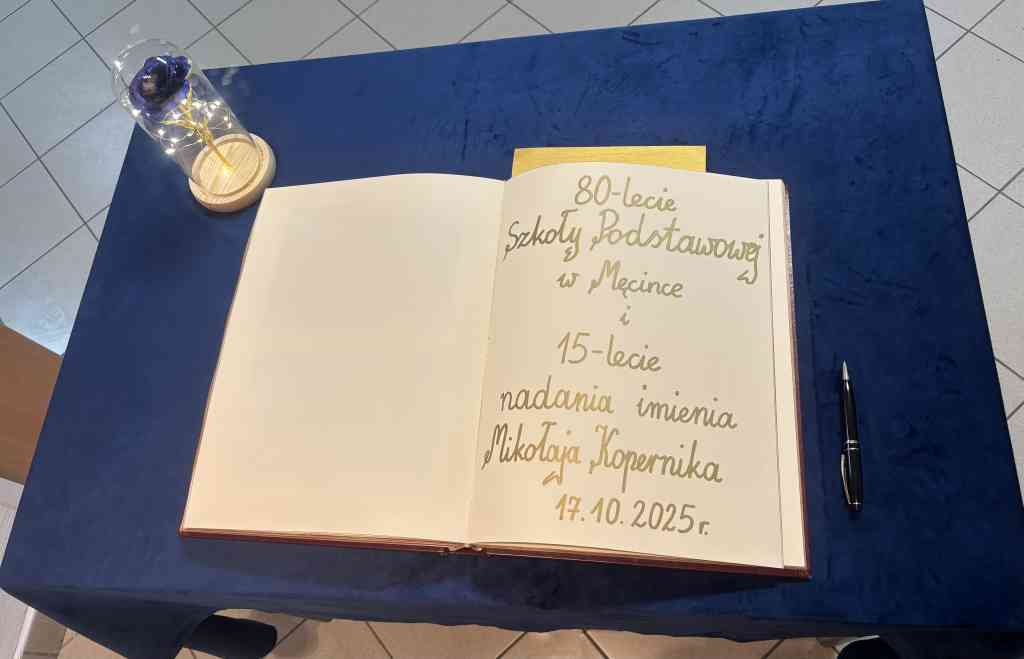 80-lecie
Szkoły Podstawowej
w Męcince
i
15-lecie
nadania imienia
Mikołaja Kopernika
17.10.2025r.